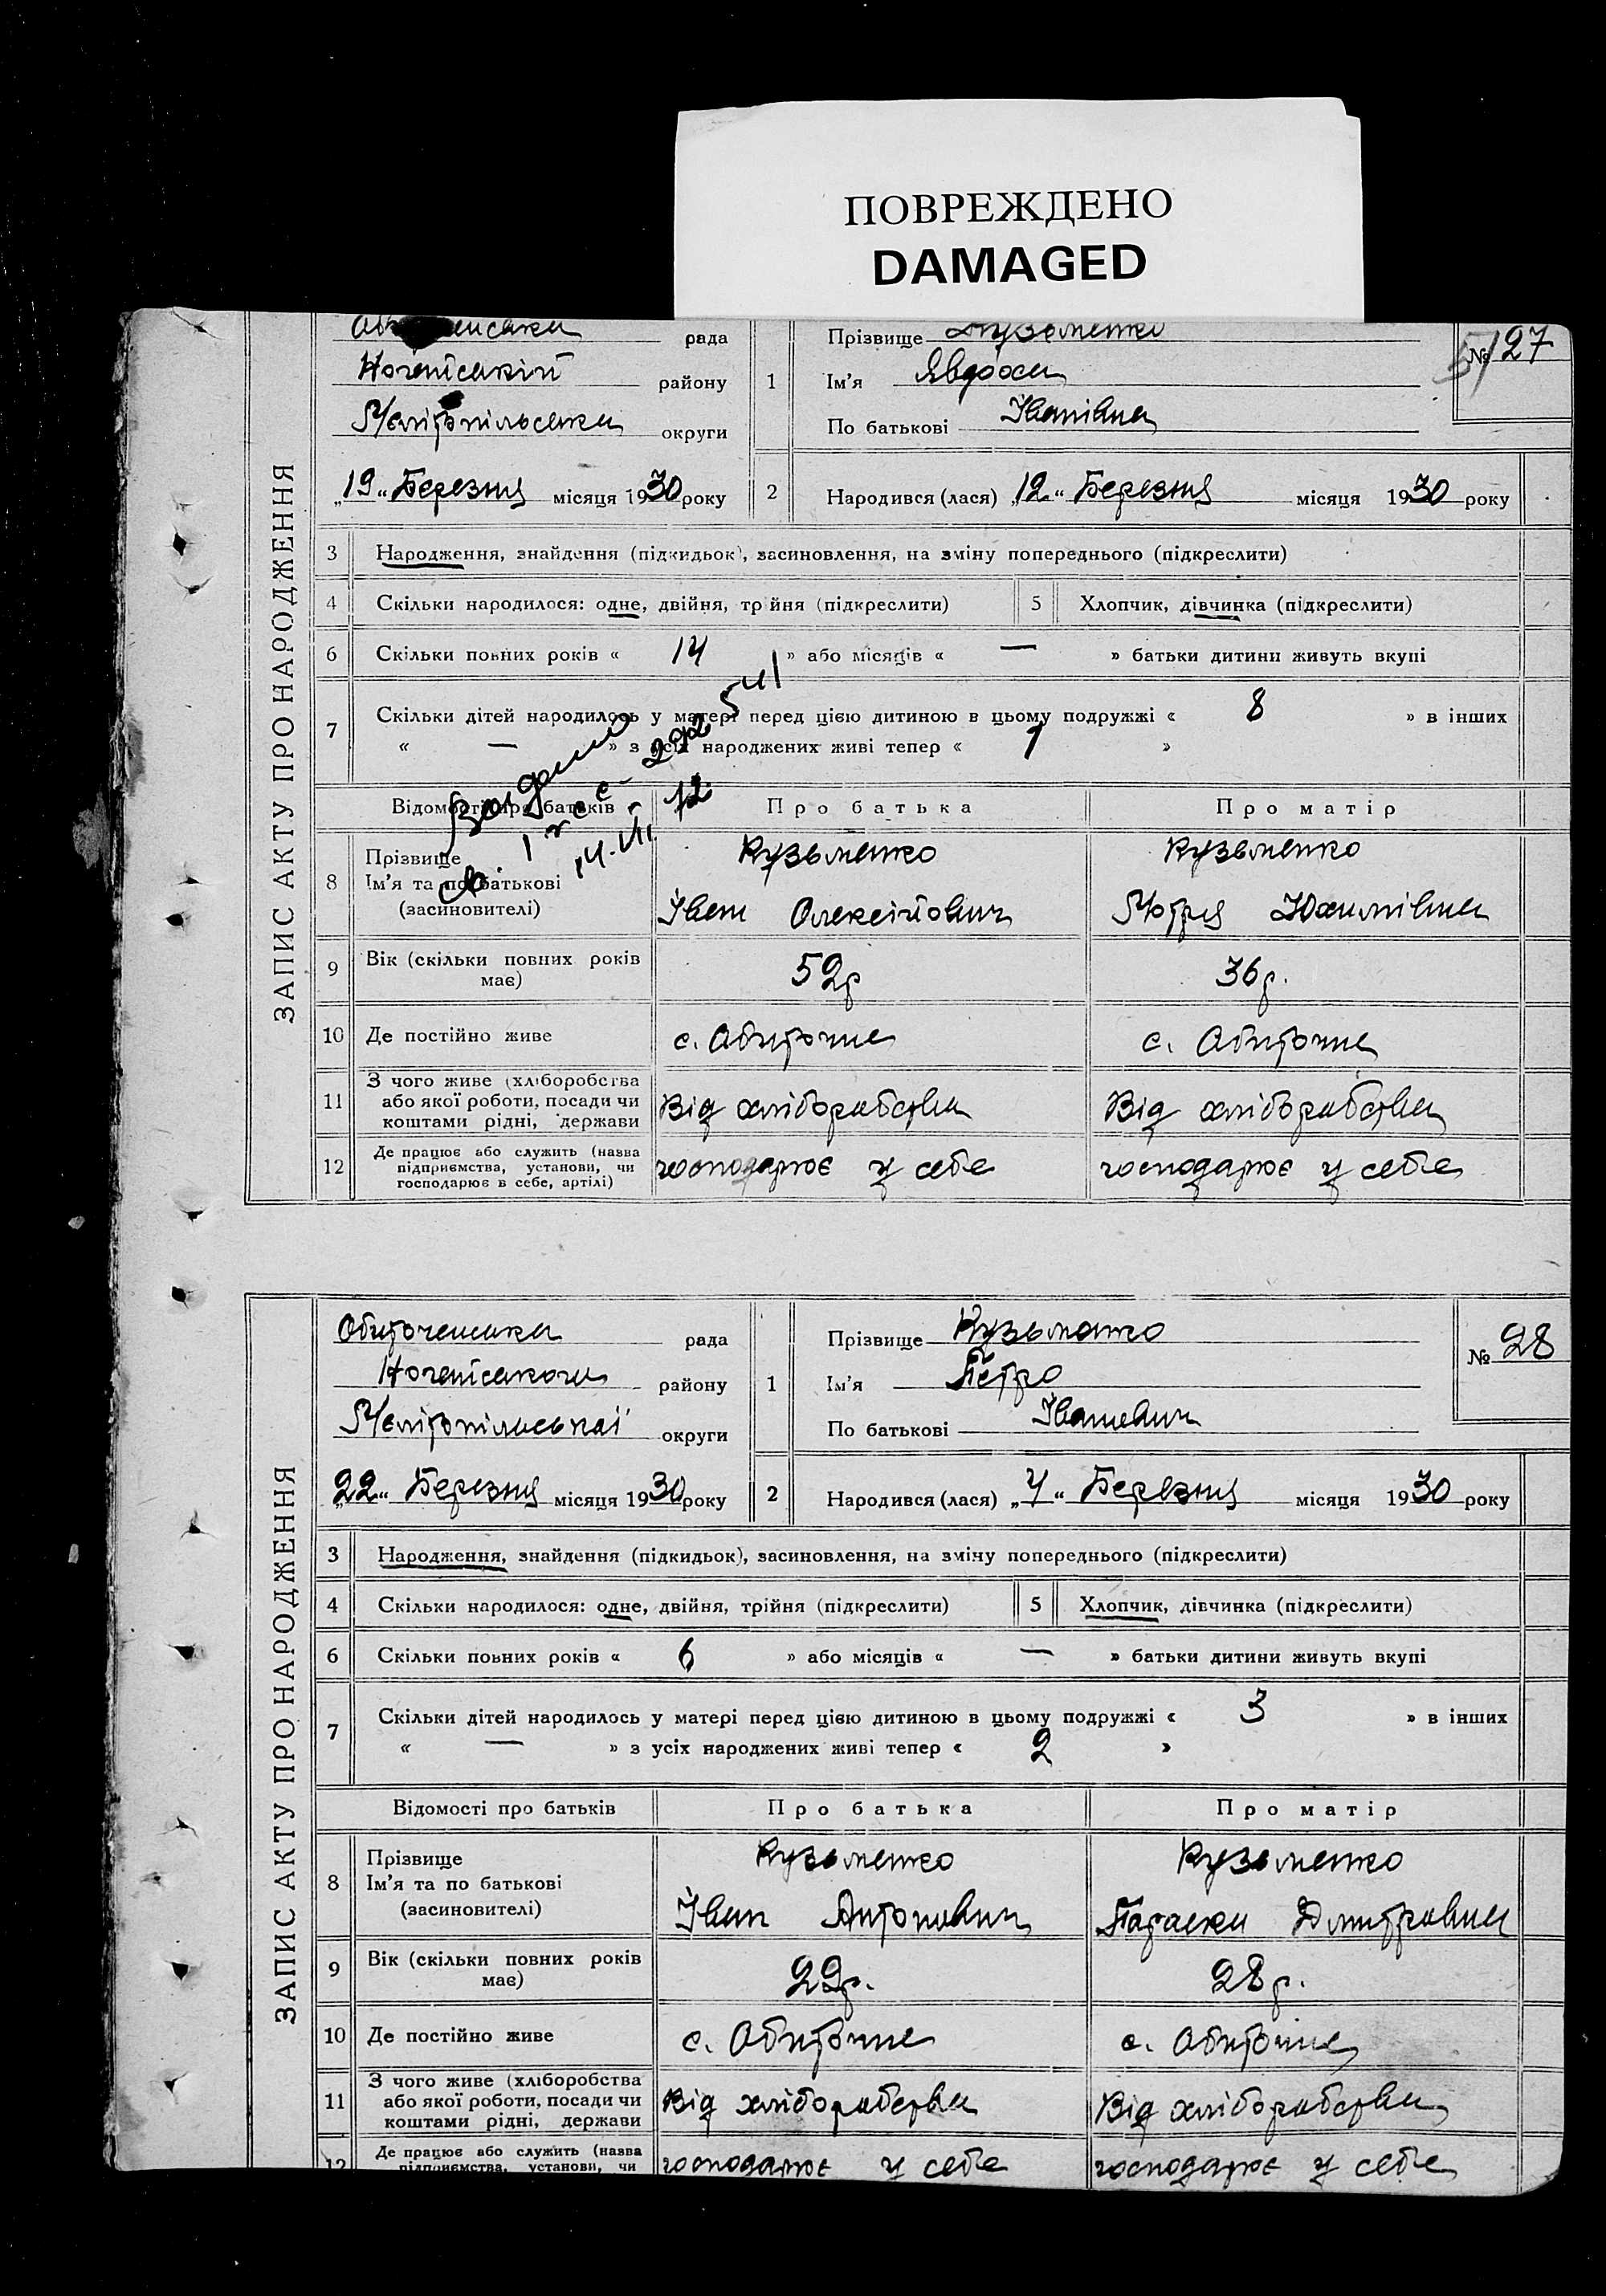 ПОВРЕЖДЕНО
DAMAGED
ЗАПИС АКТУ ПРО НАРОДЖЕННЯ
рада
Ногайський району
Мелітопільська округи
„19" Березня місяця 1930 року
1 Прізвище Кузьменко
Ім'я Явдоха
По батькові Іванівна
№ 27
2 Народився (лася) „12" Березня місяця 1930 року
3 Народження, знайдення (підкидьок), засиновлення, на зміну попереднього (підкреслити)
4 Скільки народилося: одне, двійня, трійня (підкреслити) 5 Хлопчик, дівчинка (підкреслити)
6 Скільки повних років « 14 » або місяців « — » батьки дитини живуть вкупі
7 Скільки дітей народилось у матері перед цією дитиною в цьому подружжі « 8 » в інших
« — » з усіх народжених живі тепер « »
Відомості про батьків Про батька Про матір
8 Прізвище Ім'я та по батькові (засиновителі)
Кузьменко Кузьменко
Іван Олексійович Мотря Юхимівна
9 Вік (скільки повних років має) 52 р 36 р.
10 Де постійно живе с. Обиточне с. Обиточне
11 З чого живе (хліборобства або якої роботи, посади чи коштами рідні, держави Від хліборобства Від хліборобства
12 Де працює або служить (назва підприємства, установи, чи господарює в себе, артілі) господарює у себе господарює у себе
ЗАПИС АКТУ ПРО НАРОДЖЕННЯ
Обиточенська рада
Ногайського району
Мелітопільської округи
„22" Березня місяця 1930 року
1 Прізвище Кузьменко
Ім'я Петро
По батькові Іванович
№ 28
2 Народився (лася) „4" Березня місяця 1930 року
3 Народження, знайдення (підкидьок), засиновлення, на зміну попереднього (підкреслити)
4 Скільки народилося: одне, двійня, трійня (підкреслити) 5 Хлопчик, дівчинка (підкреслити)
6 Скільки повних років « 6 » або місяців « — » батьки дитини живуть вкупі
7 Скільки дітей народилось у матері перед цією дитиною в цьому подружжі « 3 » в інших
« — » з усіх народжених живі тепер « 2 »
Відомості про батьків Про батька Про матір
8 Прізвище Ім'я та по батькові (засиновителі)
Кузьменко Кузьменко
Іван Антонович Параска Дмитровна
9 Вік (скільки повних років має) 29 р. 28 р.
10 Де постійно живе с. Обиточне с. Обиточне
11 З чого живе (хліборобства або якої роботи, посади чи коштами рідні, держави Від хліборобства Від хліборобства
12 Де працює або служить (назва підприємства, установи, чи господарює у себе господарює у себе